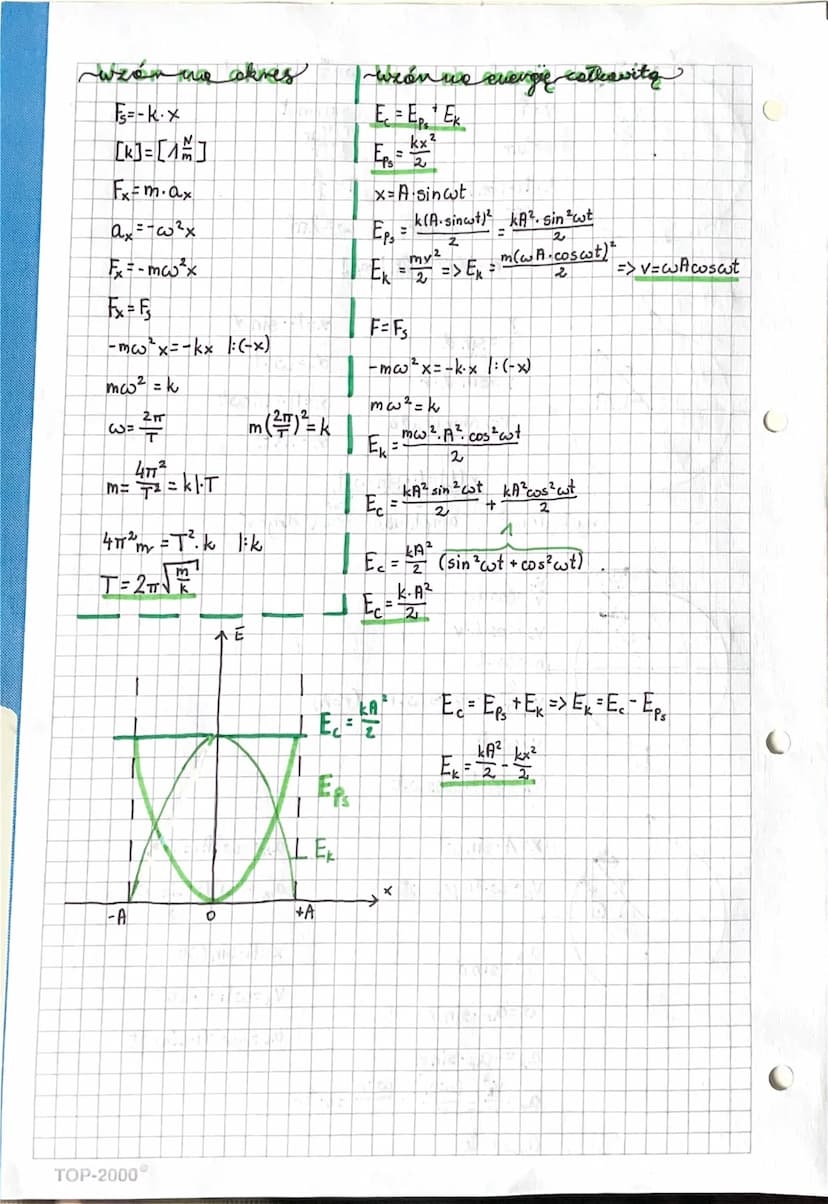 Wzór na okres
Fs=-k·x
[k]=[1 N/m]
Fx=m·ax
ax=-ω²x
Fx=-mω²x
Fx=Fs
-mω²x=-kx |:(-x)
mω²=k
ω=2π/T m(2π/T)²=k
m=4π²/T²=k|·T
4π²m=T²·k |:k
T=2π√(m/k)
Wzór na energię całkowitą
Ec=Eps+Ek
Eps=kx²/2
x=A·sinωt
Eps=k(A·sinωt)²/2=kA²·sin²ωt/2
Ek=mv²/2=>Ek=m(ωA·cosωt)²/2 => v=ωAcosωt
F=Fs
-mω²x=-k·x |:(-x)
mω²=k
Ek=mω²·A²·cos²ωt/2
Ec=kA²sin²ωt/2+kA²cos²ωt/2
1
Ec=kA²/2 (sin²ωt+cos²ωt)
Ec=k·A²/2
E
Ec=kA²/2
Eps
Ek
x
-A 0 +A
Ec=Eps+Ek=>Ek=Ec-Eps
Ek=kA²/2-kx²/2
TOP-2000®